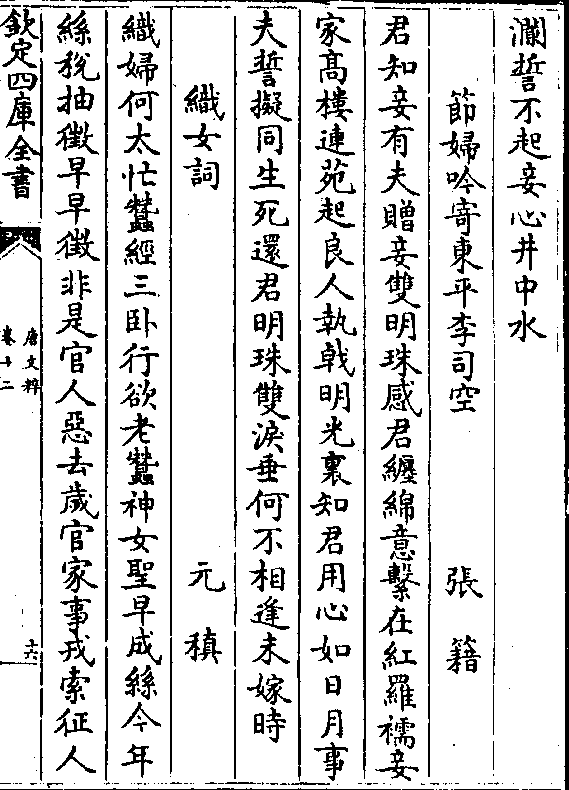 瀾誓不起妾心井中水
節婦吟寄東平李司空 張籍
君知妾有夫贈妾雙明珠感君纏綿意繫在紅羅襦妾
家高樓連苑起良人執戟明光裏知君用心如日月事
夫誓擬同生死還君明珠雙淚垂何不相逢未嫁時
織女詞 元稹
織婦何太忙蠶經三卧行欲老蠶神女聖早成絲今年
絲稅抽徵早早徵非是官人惡去歲官家事戎索征人
欽定四庫全書
唐文粹
卷十二
十六